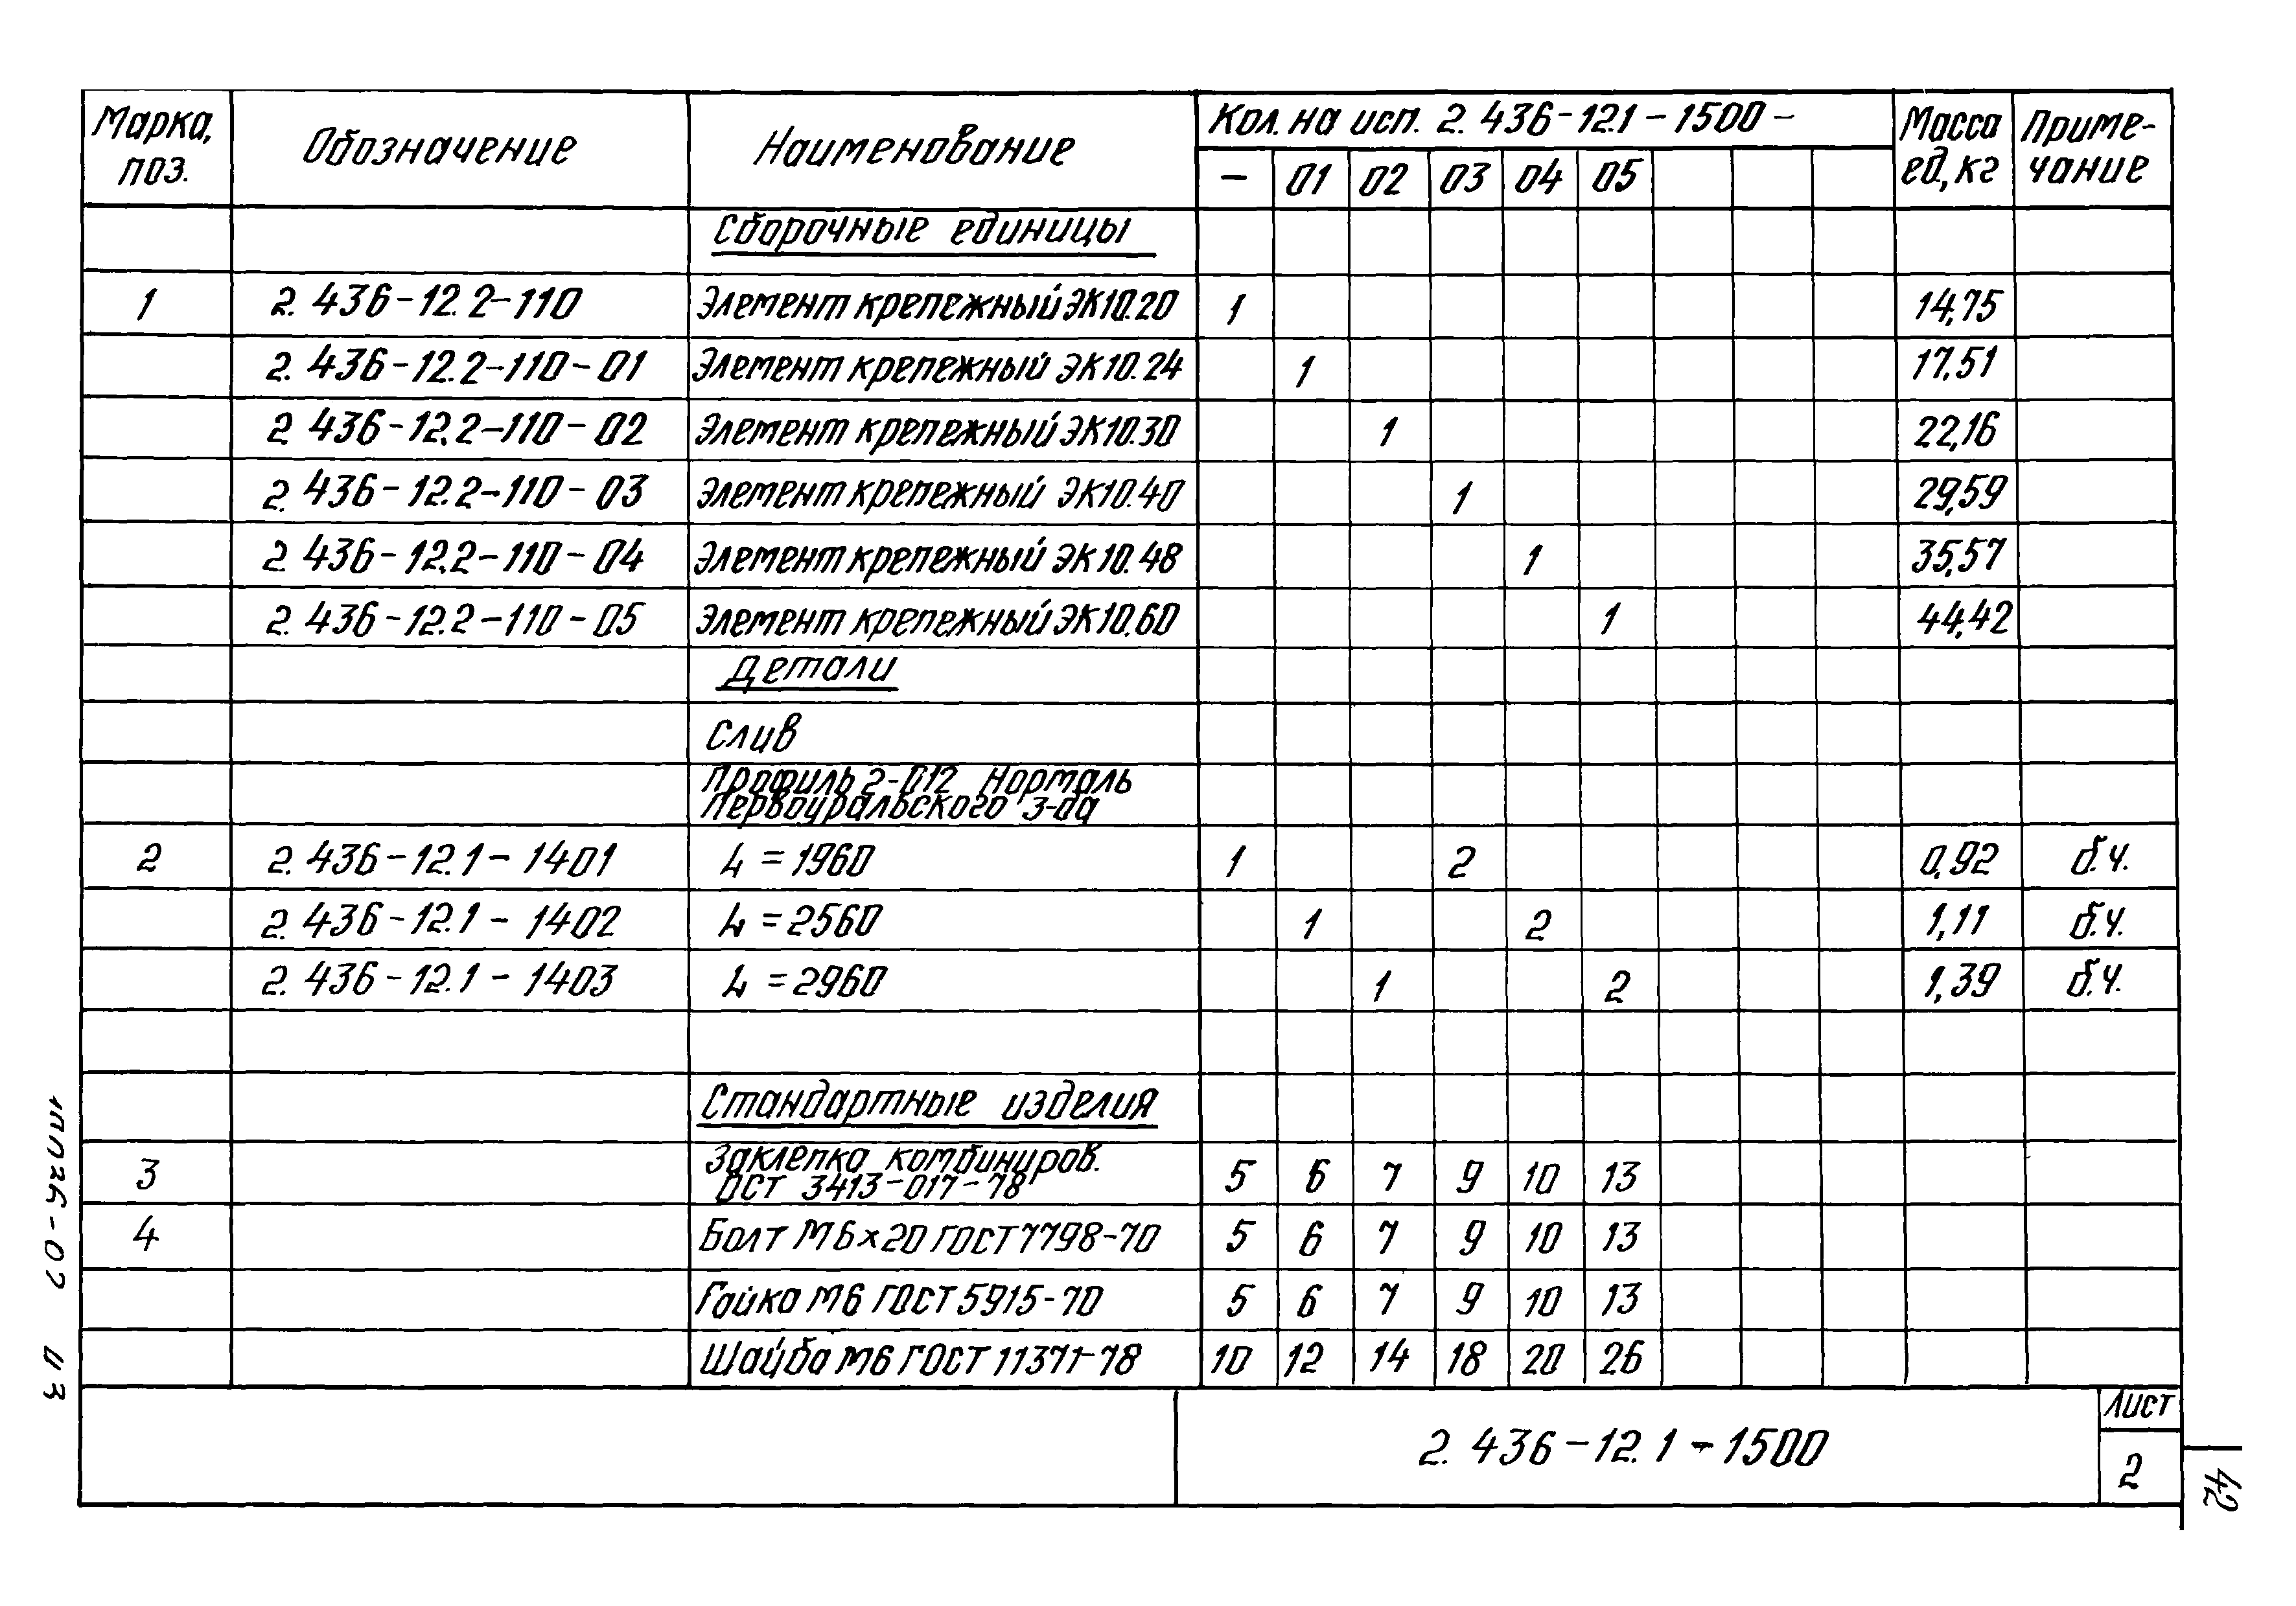 Марка, поз. Обозначение Наименование Кол. на исп. 2.436-12.1-1500- Масса ед., кг Приме-чание
- 01 02 03 04 05
Сборочные единицы
1 2.436-12.2-110 Элемент крепежный ЭК10.20 1 14,75
2.436-12.2-110-01 Элемент крепежный ЭК10.24 1 17,51
2 436-12.2-110-02 Элемент крепежный ЭК10.30 1 22,16
2.436-12.2-110-03 Элемент крепежный ЭК10.40 1 29,59
2.436-12.2-110-04 Элемент крепежный ЭК10.48 1 35,57
2.436-12.2-110-05 Элемент крепежный ЭК10.60 1 44,42
Детали
Слив
Профиль 2-012 Нормаль
Первоуральского з-да
2 2.436-12.1-1401 L=1960 1 2 0,92 б.ч.
2.436-12.1-1402 L=2560 1 2 1,11 б.ч.
2.436-12.1-1403 L=2960 1 2 1,39 б.ч.
Стандартные изделия
3 Заклепка комбиниров. 5 6 7 9 10 13
ОСТ 3413-017-78
4 Болт М6х20 ГОСТ 7798-70 5 6 7 9 10 13
Гайка М6 ГОСТ 5915-70 5 6 7 9 10 13
Шайба М6 ГОСТ 11371-78 10 12 14 18 20 26
2.436-12.1-1500
Лист
2
42